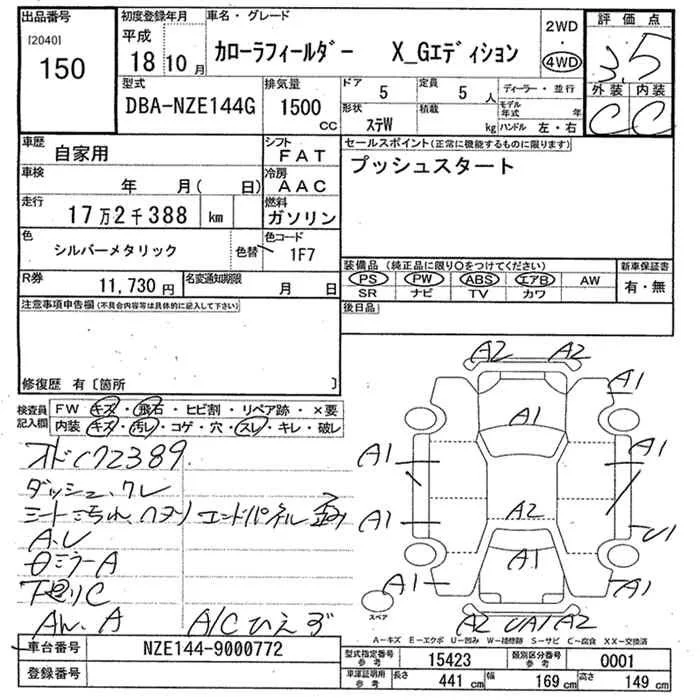 出品番号 初度登録年月 車名・グレード 2WD 評価点
[2040] 平成
150 18 10月 カローラフィールダー X_Gエディション ・ 3.5
4WD
型式 排気量 ドア 5 定員 5人 ディーラー・並行 外装 内装
DBA-NZE144G 1500 CC 形状 ステW 積載 kg モデル年式 年 C C
ハンドル 左・右
車歴 自家用 シフト FAT セールスポイント(正常に機能するものに限ります)
車検 年 月( 日) 冷房 AAC プッシュスタート
走行 17万2千388 km 燃料 ガソリン
色 シルバーメタリック 色替 色コード 1F7
装備品 (純正品に限り○をつけてください) 新車保証書
R券 11,730円 名変通知期限 月 日 PS PW ABS エアB AW 有・無
SR ナビ TV カワ
注意事項申告欄(不具合内容等は具体的に記入して下さい) 後日品
修復歴 有〔箇所 〕
検査員記入欄 FW キズ・飛石・ヒビ割・リペア跡・×要
内装 キズ・汚レ・コゲ・穴・スレ・キレ・破レ
A2 A2
A1
A1
A1 A1
A1 A2 U1
A1
A1 A1
スペア
A2 UA1 A2
ダッシュ、
エンドパネル
A.U
ミラーA
C
A
A/C
A-キズ E-エクボ U-凹み W-補修跡 S-サビ C-腐食 XX-交換済
車台番号 NZE144-9000772 型式指定番号 参考 15423 類別区分番号 参考 0001
登録番号 車庫証明用 参考 長さ 441 cm 幅 169 cm 高さ 149 cm